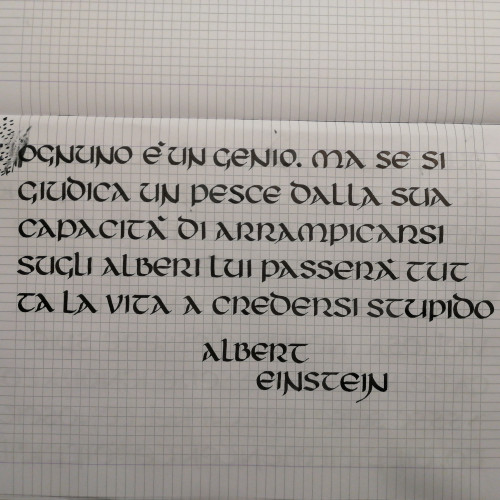 OGNUNO È UN GENIO. MA SE SI
GIUDICA UN PESCE DALLA SUA
CAPACITÀ DI ARRAMPICARSI
SUGLI ALBERI LUI PASSERÀ TUT
TA LA VITA A CREDERSI STUPIDO
ALBERT
EINSTEIN